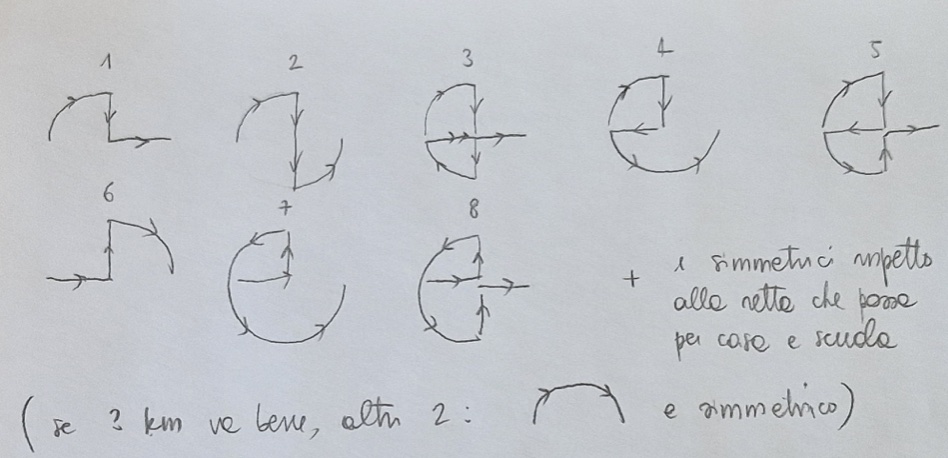 1 2 3 4 5
6 7 8
+ i simmetrici rispetto
alla retta che passa
per casa e scuola
(se 3 km va bene, altri 2: e simmetrico)